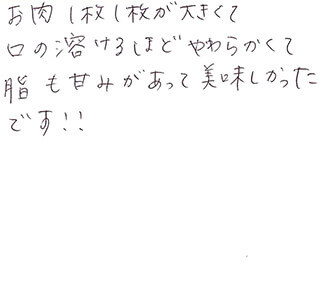 お肉1枚1枚が大きくて
口の溶けるほどやわらかくて
脂も甘みがあって美味しかった
です!!